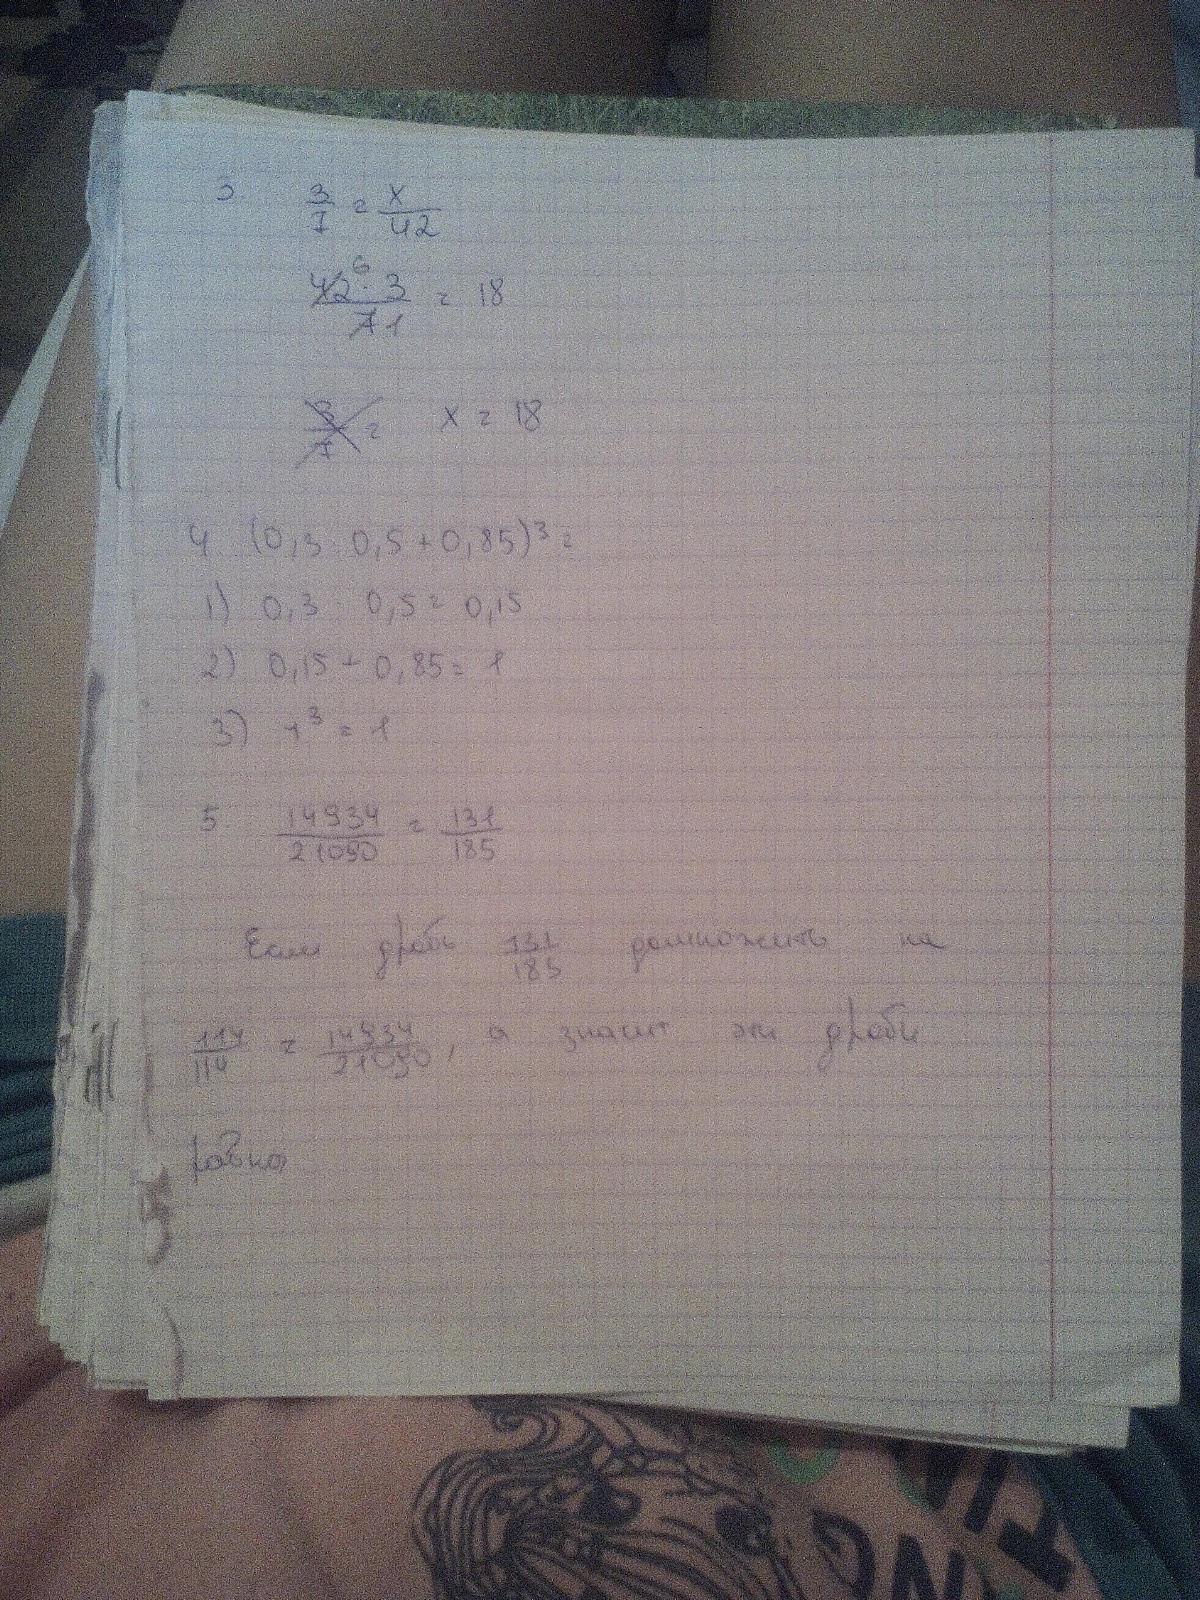 3. 3/7 = x/42
42⁶ · 3 / 7 1 = 18
3/7 = x = 18
4 (0,3 · 0,5 + 0,85)³ =
1) 0,3 · 0,5 = 0,15
2) 0,15 + 0,85 = 1
3) 1³ = 1
5. 14934/21090 = 131/185
Если дробь 131/185 домножить на
114/114 = 14934/21090, а значит эти дроби
равны